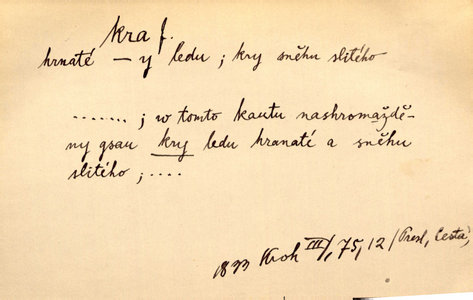 kra f.
hrnaté — y ledu ; kry sněhu slitého
....... ; w tomto kautu nashromáždě-
ny gsau kry ledu hranaté a sněhu
slitého ; ....
1833 Kroh III/, 75, 12 / Presl, Cesta,